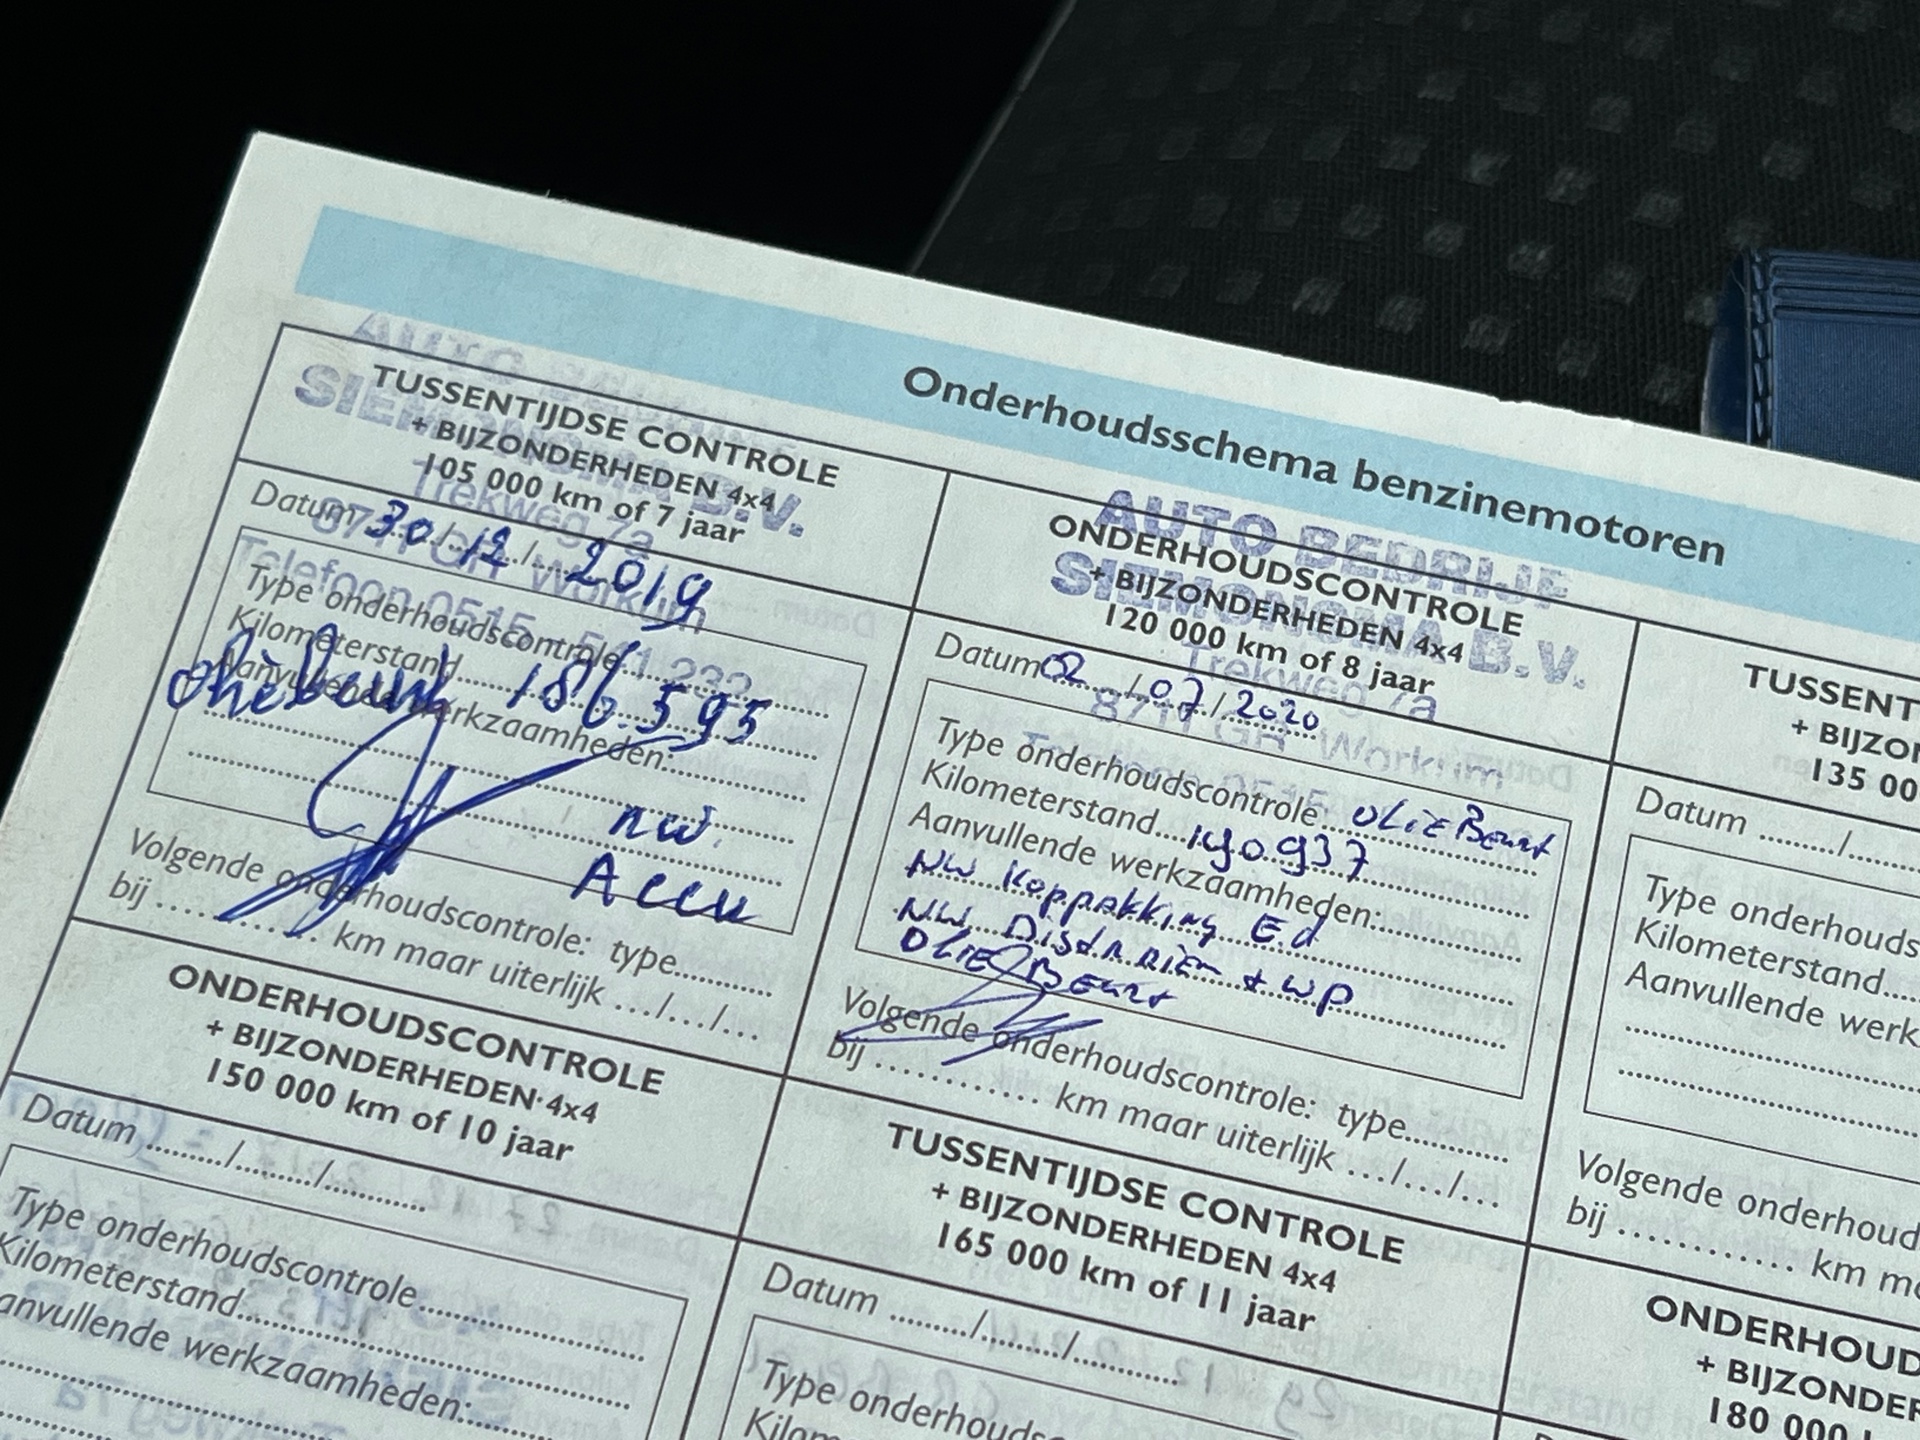 Onderhoudsschema benzinemotoren
AUTO
SIEMONSMA B.V.
Trekweg 7a
8711 GR Workum
Telefoon 0515 - 541 232
TUSSENTIJDSE CONTROLE
+ BIJZONDERHEDEN 4x4
105 000 km of 7 jaar
Datum 30/12/2019
Type onderhoudscontrole:
Kilometerstand 186.595
Aanvullende werkzaamheden:
oliebeurt
nw.
Accu
Volgende onderhoudscontrole: type
bij km maar uiterlijk .../.../...
AUTO BEDRIJF
SIEMONSMA B.V.
Trekweg 7a
8711 GR Workum
ONDERHOUDSCONTROLE
+ BIJZONDERHEDEN 4x4
120 000 km of 8 jaar
Datum 02/07/2020
Type onderhoudscontrole: OLIE Beurt
Kilometerstand 190937
Aanvullende werkzaamheden:
NW Koppakking Ed
NW Distr Riem + WP
OLIE Beurt
Volgende onderhoudscontrole: type
bij km maar uiterlijk .../.../...
TUSSENT
+ BIJZO
135 00
Datum ......./
Type onderhouds
Kilometerstand
Aanvullende werk
Volgende onderhoud
bij km m
ONDERHOUDSCONTROLE
+ BIJZONDERHEDEN 4x4
150 000 km of 10 jaar
Datum ......./......./.......
Type onderhoudscontrole
Kilometerstand
anvullende werkzaamheden:
TUSSENTIJDSE CONTROLE
+ BIJZONDERHEDEN 4x4
165 000 km of 11 jaar
Datum ......./......./.......
Type onderhoudsc
Kilom
ONDERHOUD
+ BIJZONDER
180 000